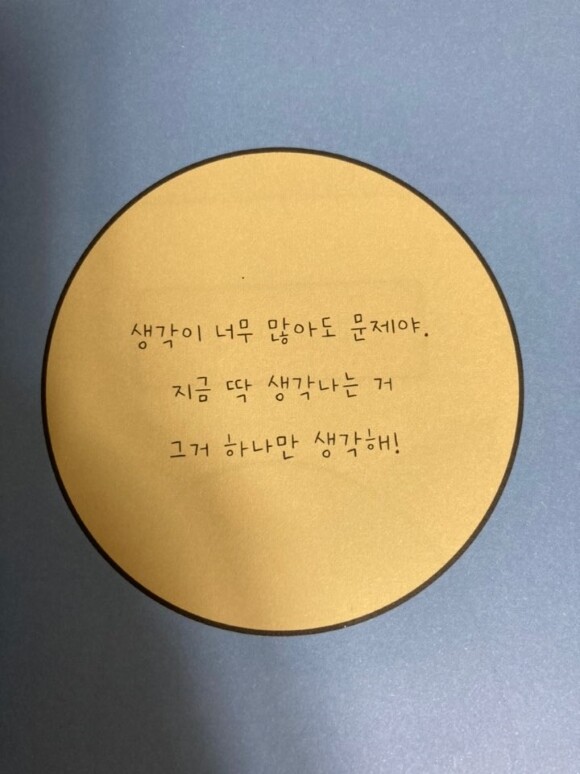 생각이 너무 많아도 문제야.
지금 딱 생각나는 거
그거 하나만 생각해!